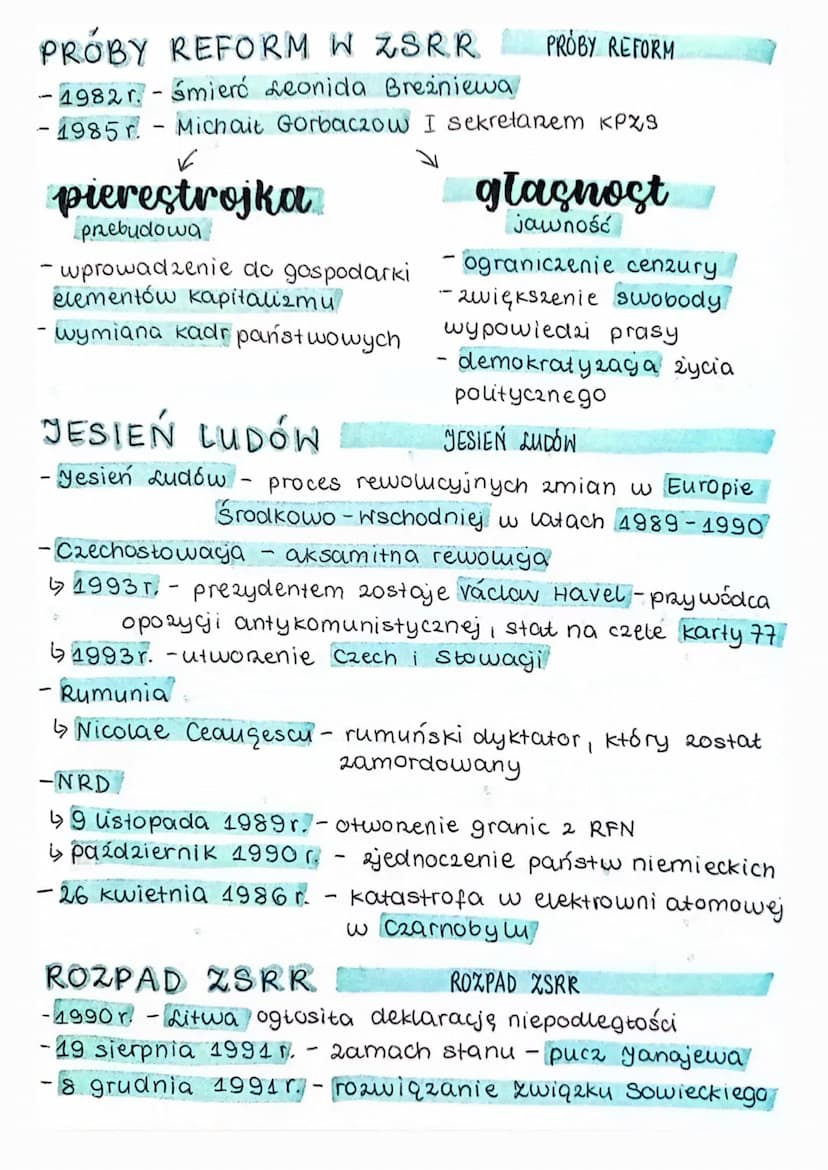 PRÓBY REFORM W ZSRR PRÓBY REFORM
- 1982 r. - śmierć Leonida Breżniewa
- 1985 r. - Michaił Gorbaczow I sekretarzem KPZS
pierestrojka
przebudowa
- wprowadzenie do gospodarki
elementów kapitalizmu
- wymiana kadr państwowych
głasnost
jawność
- ograniczenie cenzury
- zwiększenie swobody
wypowiedzi prasy
- demokratyzacja życia
politycznego
JESIEŃ LUDÓW JESIEŃ LUDÓW
- Jesień Ludów - proces rewolucyjnych zmian w Europie
Środkowo - Wschodniej w latach 1989 - 1990
- Czechosłowacja - aksamitna rewolucja
↳ 1993 r. - prezydentem zostaje Václav Havel - przywódca
opozycji antykomunistycznej, stał na czele karty 77
↳ 1993 r. - utworzenie Czech i Słowacji
- Rumunia
↳ Nicolae Ceaușescu - rumuński dyktator, który został
zamordowany
- NRD
↳ 9 listopada 1989 r. - otworzenie granic z RFN
↳ październik 1990 r. - zjednoczenie państw niemieckich
- 26 kwietnia 1986 r. - katastrofa w elektrowni atomowej
w Czarnobylu
ROZPAD ZSRR ROZPAD ZSRR
- 1990 r. - Litwa ogłosiła deklarację niepodległości
- 19 sierpnia 1991 r. - zamach stanu - pucz Janajewa
- 8 grudnia 1991 r. - rozwiązanie Związku Sowieckiego